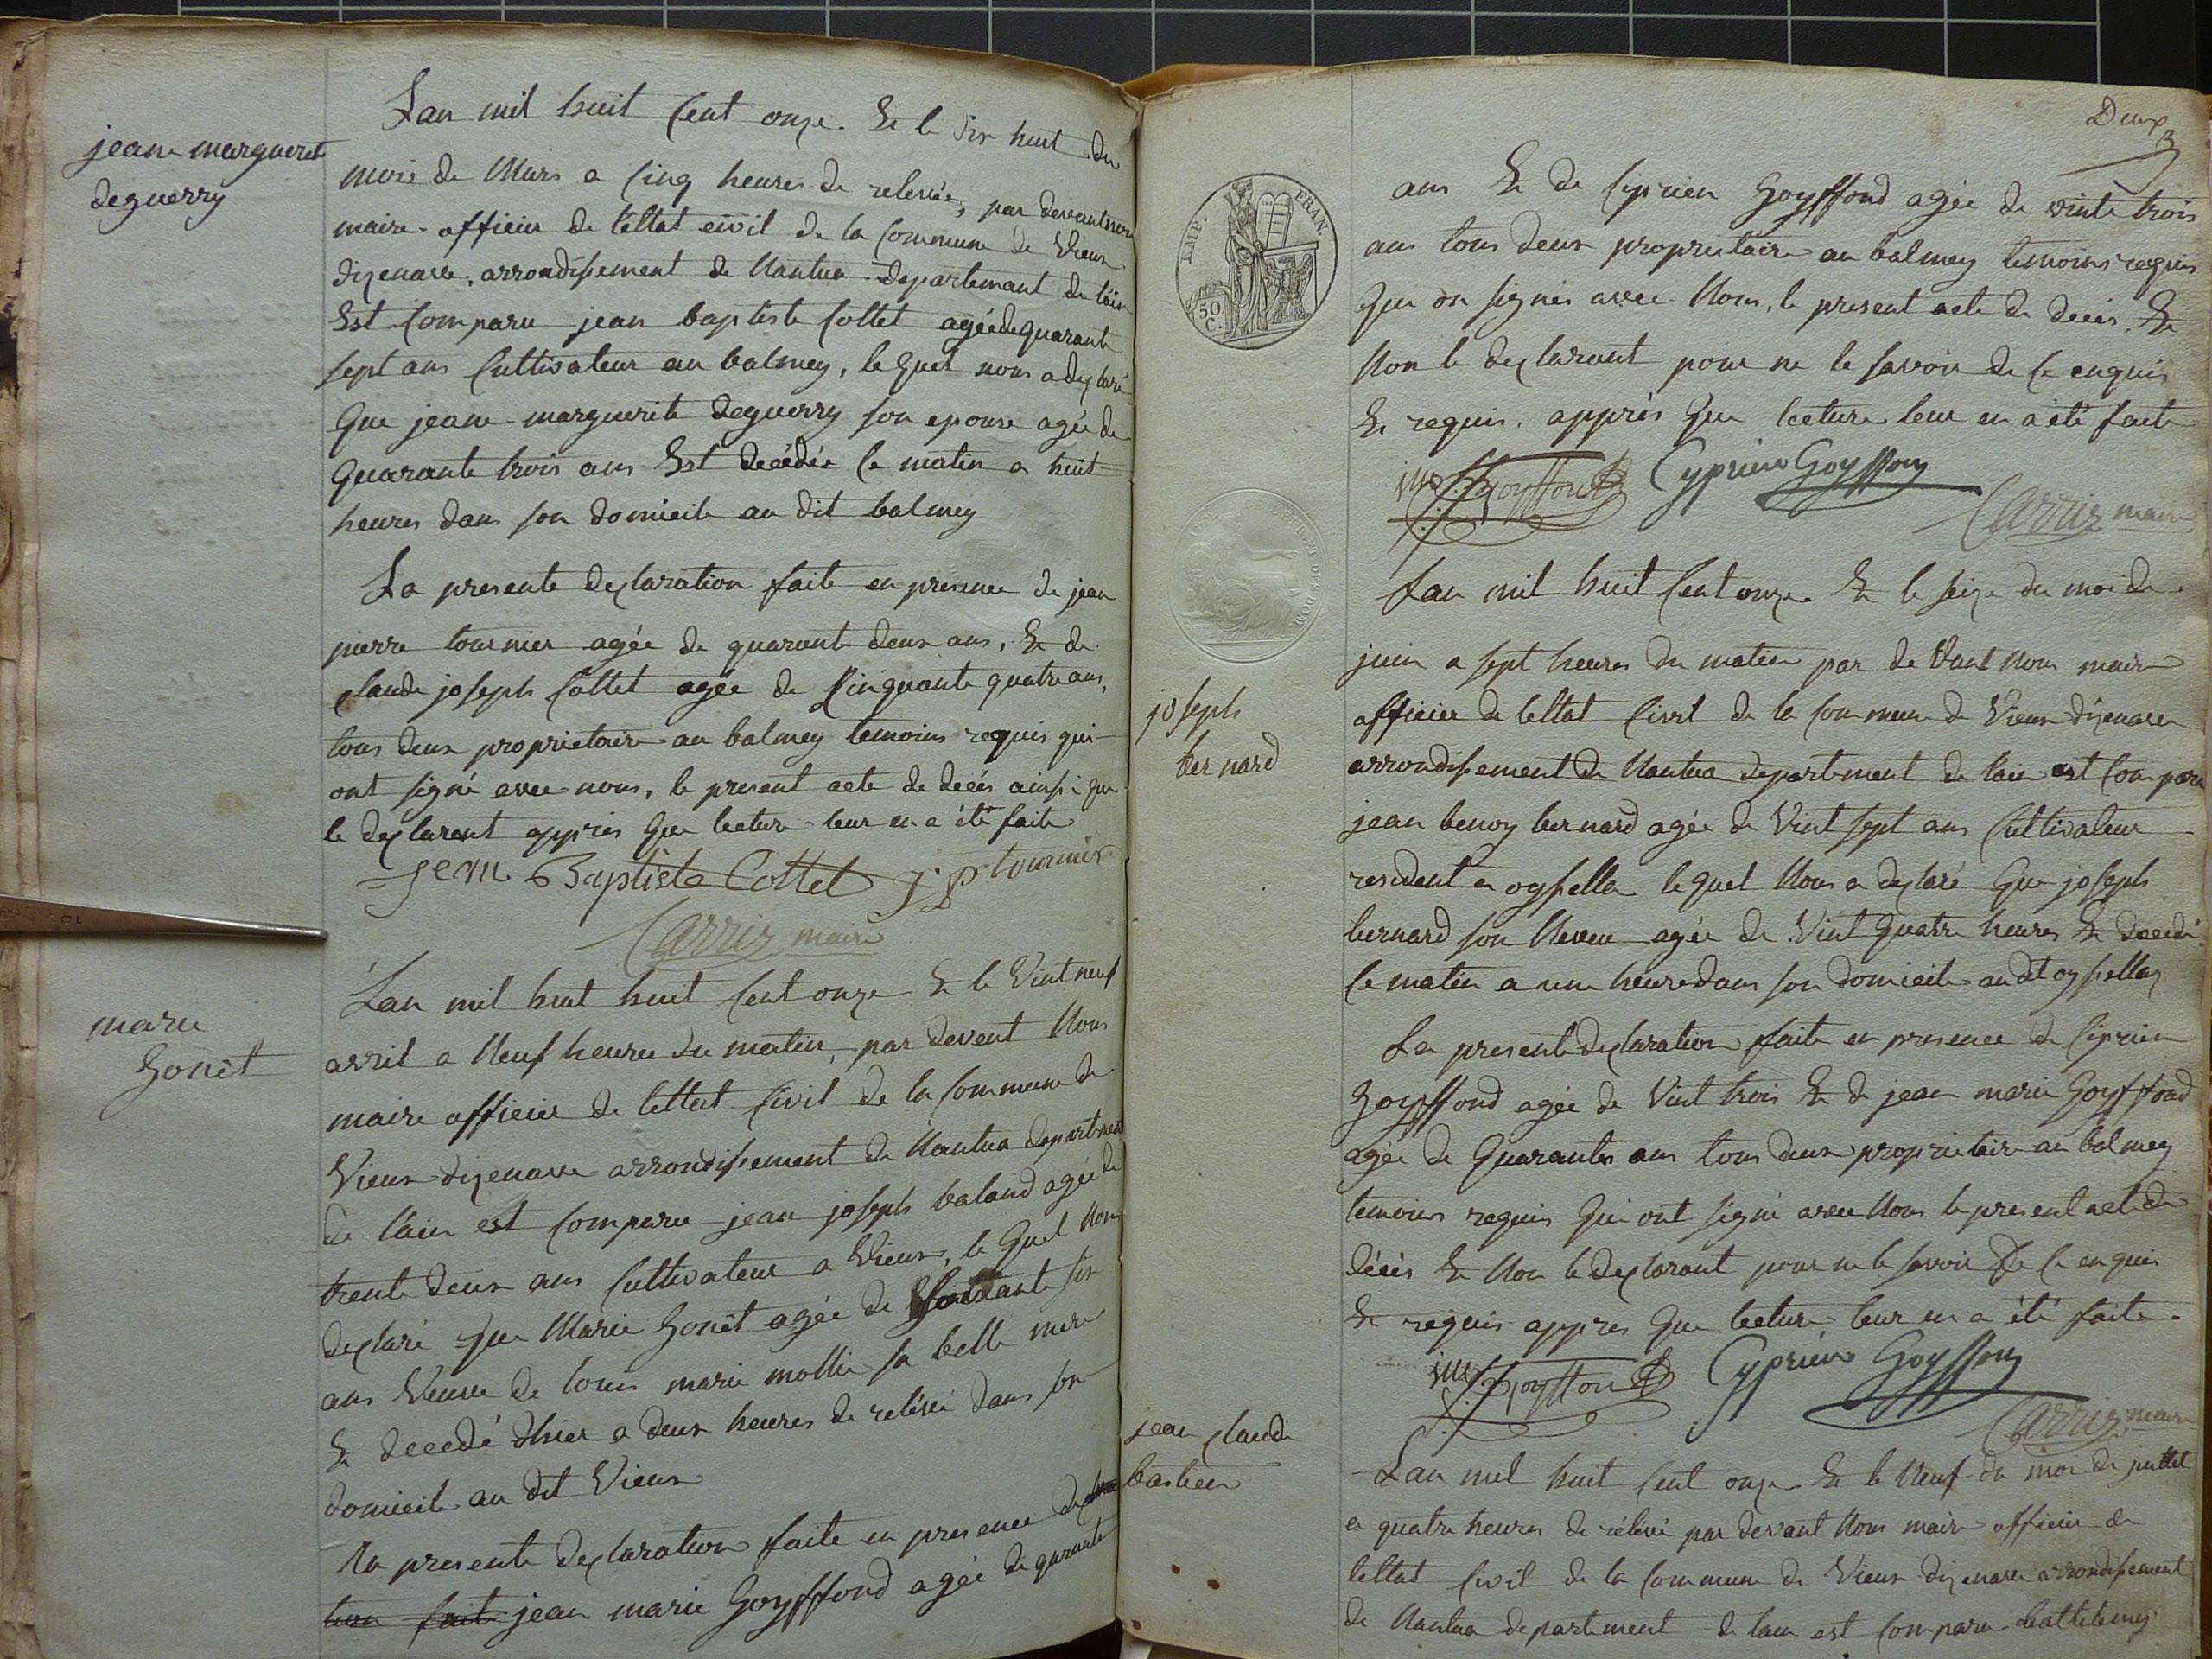 jeane margueret
deguerry
Lan mil huit Cent onze. Et le dix huit du
mois de Mars a Cinq heures de relevée, par devant nous
maire officier de lettat civil de la Commune de Vieux
dizenave, arrondissement de Nantua departemant de lain
Est Comparu jean baptiste Collet agée de quarante
sept ans Cultivateur au balmey, le quel nous a declaré
Que jeane marguerite deguerry son epouse agée de
Quarante trois ans Est decédée Ce matin a huit
heures dans son domicile au dit balmey
La presente declaration faite en presence de jean
pierre tournier agée de quarante deux ans, Et de
Claude joseph Collet agée de Cinquante quatre ans,
tous deux proprietaire au balmey temoins requis qui
ont signé avec nous, le present acte de decés ainsi que
le declarent appres Que lecture leur en a été faite
Jean Baptiste Collet j. p. tournier
Carrier maire
marie
Gonet
Lan mil huit huit Cent onze Et le Vint neuf
avril a Neuf heures du matin, par devent Nous
maire officier de lettat Civil de la Commune de
Vieux dizenave arrondissement de Nantua departement
de lain est Comparu jean joseph baland agée de
trente deux ans Cultivateur a Vieux, le Quel Nous
declaré que Marie Gonet agée de Soixante six
ans Veuve de louis marie mollie sa belle mere
Et decedé dhier a deux heures de relévé dans son
domicile au dit Vieux
La presente declaration faite en presence de
tion fait jean marie Goyffond agée de quarante
Deux
IMP. FRAN.
50 C.
ans Et de Ciprien Goyffond agée de vinte trois
ans tous deux proprietaire au balmey temoins requis
Que on signés avec Nous, le present acte de decés, Et
Non le declarant pour ne le savoir de Ce enquis
Et requis. apprés Que lecture leur en a été faite
jm Goyffond Cyprien Goyffon
Carrier maire
joseph
bernard
Lan mil huit Cent onze Et le seize du moi de
juin a sept heures du matin par de Vant Nous maire
officier de lettat Civil de la Commune de Vieux dizenave
arrondissement de Nantua departement de lain est Comparu
jean benoy bernard agée de Vint sept ans Cultivateur
resident a oyssella lequel Nous a declaré Que joseph
bernard son Neveu agée de Vint Quatre heures Et decedé
Ce matin a une heure dans son domicile au dit oyssella
La presente declaration faite en presence de Ciprien
Goyffond agée de Vint trois Et de jean marie Goyffond
agée de Quarante ans tous deux proprietaire au balmey
temoins requis Qui ont signé avec Nous le present acte de
décés Et Non le declarant pour ne le savoir de Ce enquis
Et requis appres Que lecture leur en a été faite.
jm Goyffond Cyprien Goyffon
Carrier maire
jean Claude
bastien
Lan mil huit Cent onze Et le Neuf du moi de juillet
a quatre heures de rélévé par devant Nous maire officier de
lettat Civil de la Commune de Vieux dizenave arrondissement
de Nantua departement de lain est Comparu battelemy